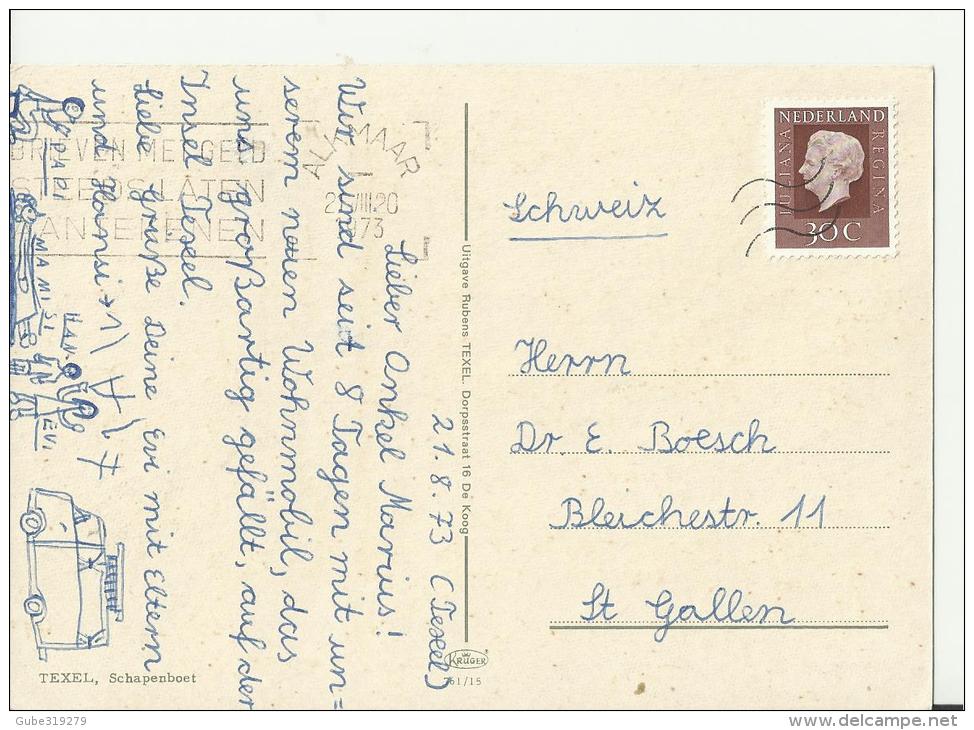 21.8.73 (Texel)
Lieber Onkel Marius!
Wir sind seit 8 Tagen mit un=
serem neuen Wohnmobil, das
uns großartig gefällt, auf der
Insel Texel.
Liebe Grüße Deine Evi mit Eltern
und Hansi →
PAPI
MAMI
HAN.
SI
EVI
TEXEL, Schapenboet
BRIEVEN MET GELD
STEEDS LATEN
AANTEKENEN
ALKMAAR
VIII.20
1973
Uitgave Rubens TEXEL. Dorpsstraat 16 De Koog
KRÜGER
761/15
NEDERLAND
JULIANA
REGINA
30 C
Schweiz
Herrn
Dr. E. Boesch
Bleichestr. 11
St Gallen
Gube319279
www.delcampe.net